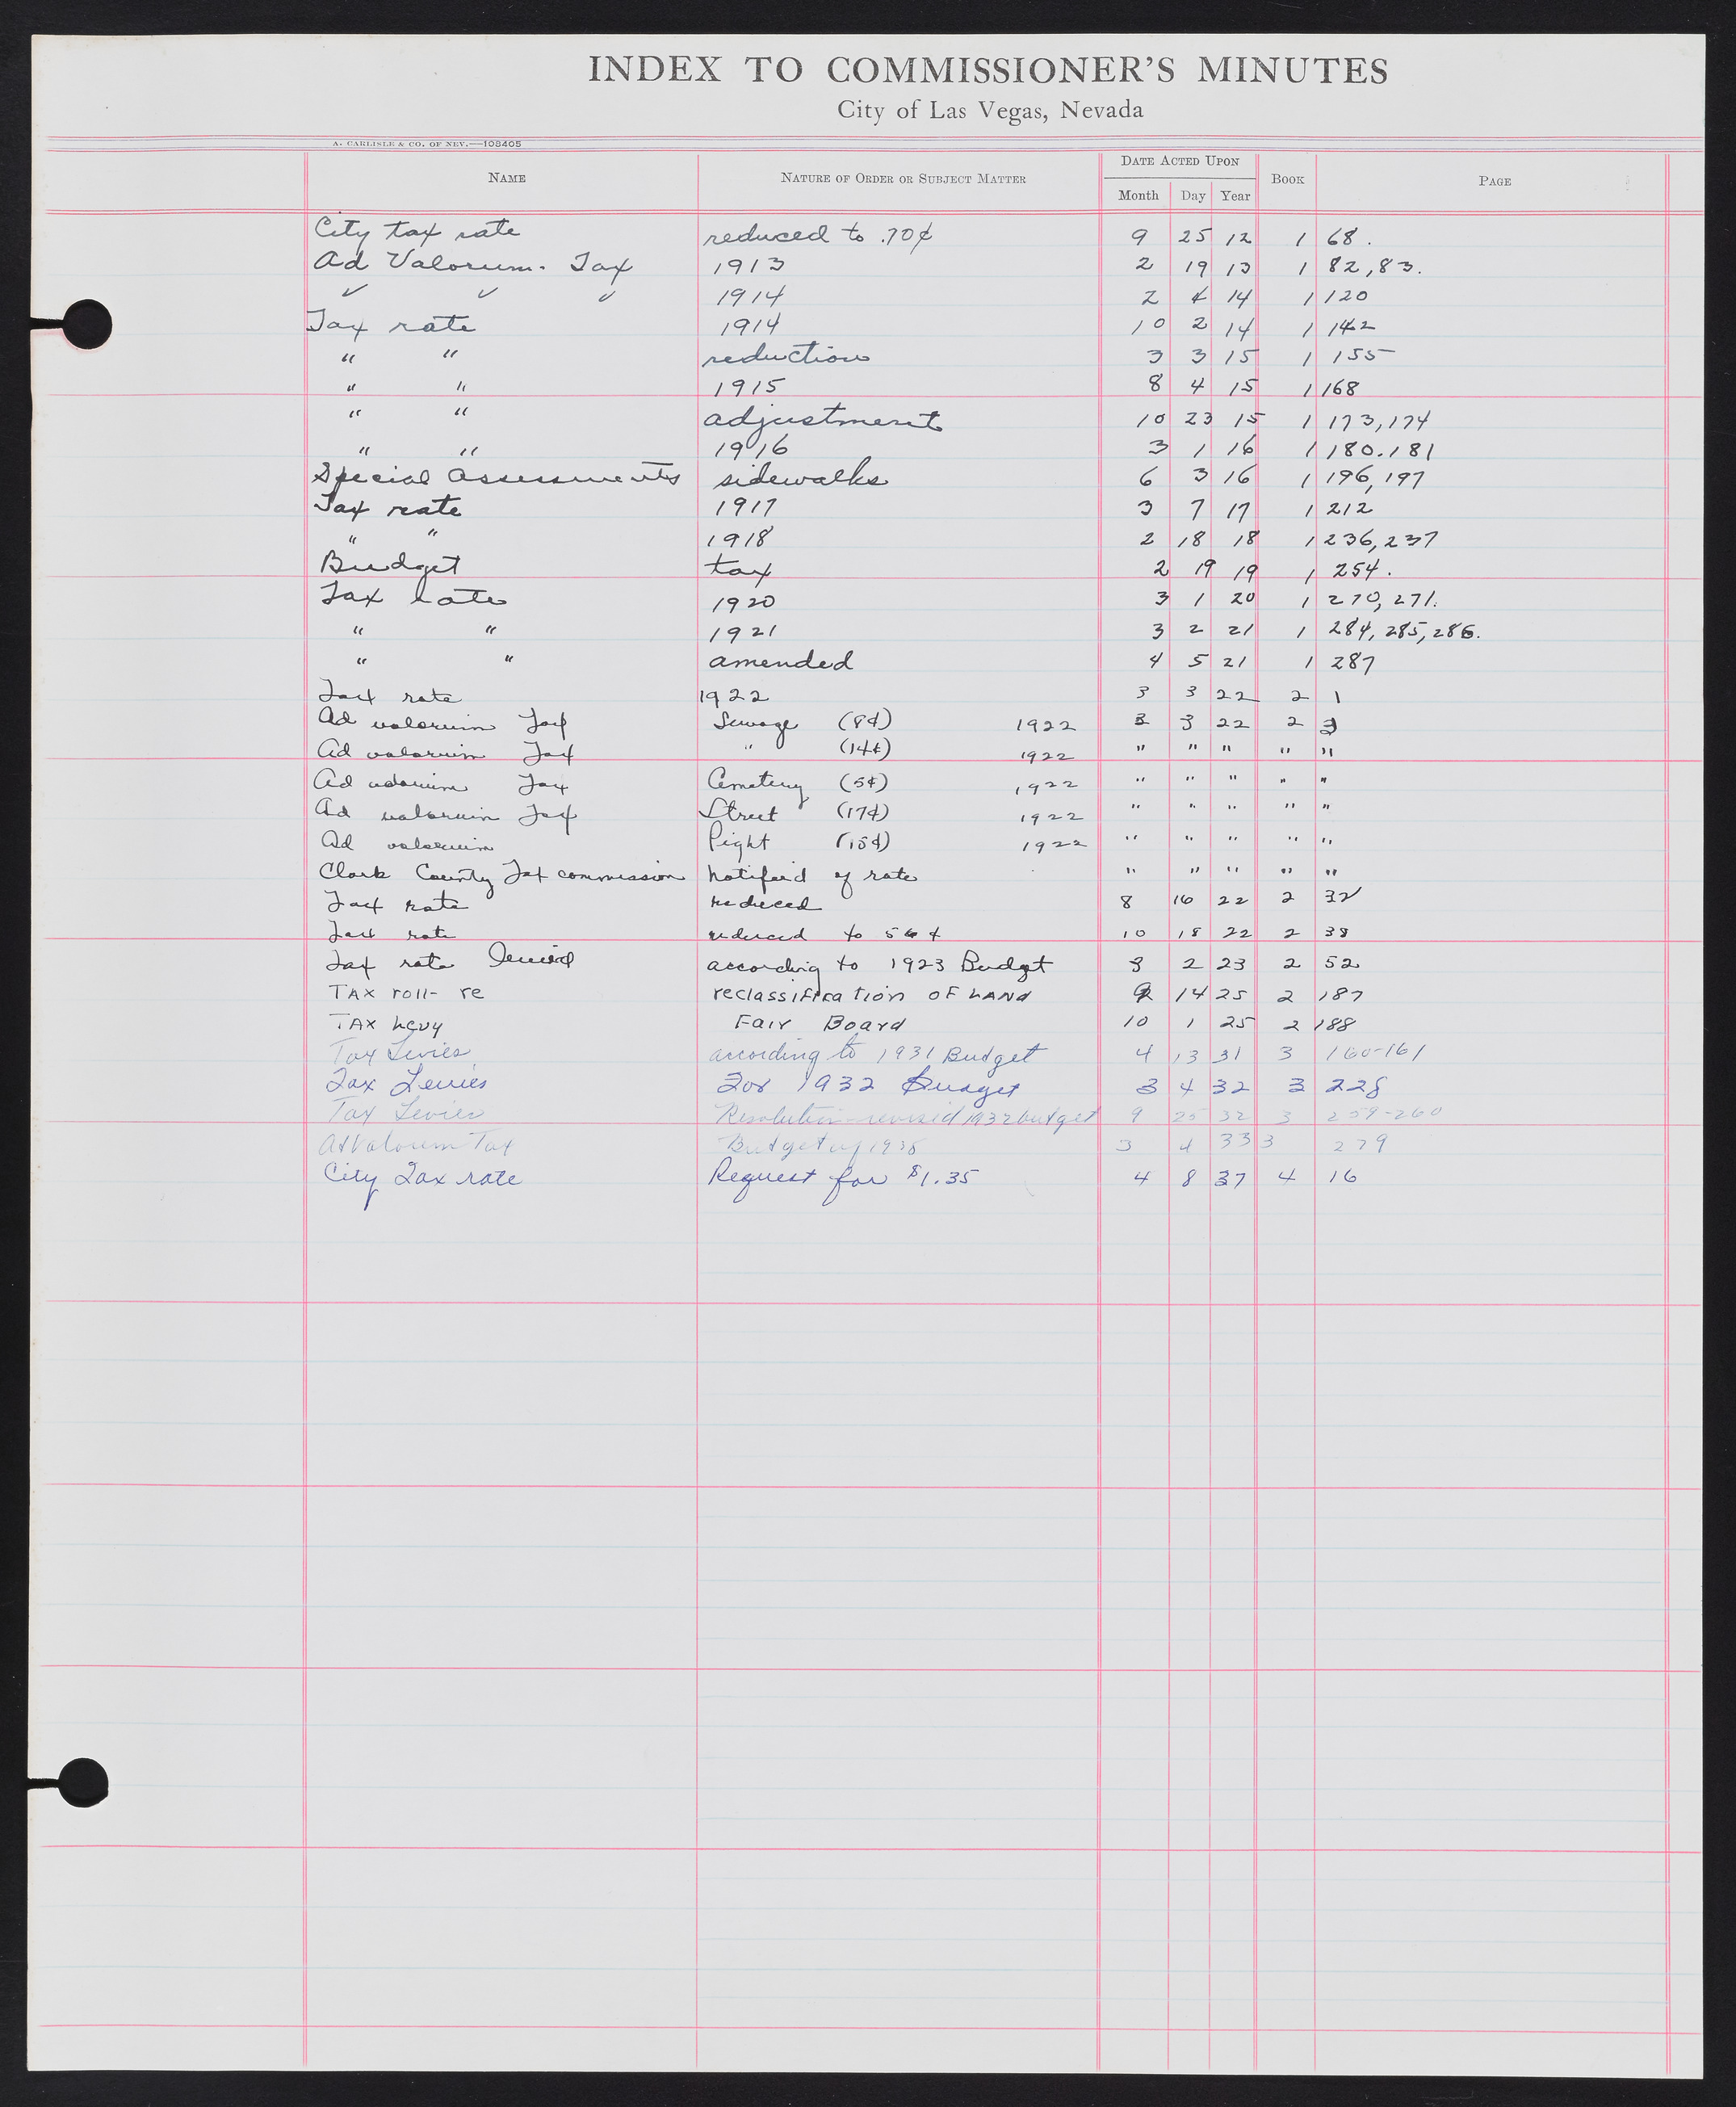 INDEX TO COMMISSIONER'S MINUTES
City of Las Vegas, Nevada
A. CARLISLE & CO. OF NEV.—108405
NAME NATURE OF ORDER OR SUBJECT MATTER DATE ACTED UPON Month Day Year BOOK PAGE
City tax rate reduced to .70¢ 9 25 12 1 68.
Ad Valorum. Tax 1913 2 19 13 1 82,83.
✓ ✓ ✓ 1914 2 4 14 1 120
Tax rate 1914 10 2 14 1 142
" " reduction 3 3 15 1 155
" " 1915 8 4 15 1 168
" " adjustment 10 23 15 1 173,174
" " 1916 3 1 16 1 180.181
Special Assessments sidewalks 6 3 16 1 196,197
Tax rate 1917 3 7 17 1 212
" " 1918 2 18 18 1 236,237
Budget tax 2 19 19 1 254.
Tax Rate 1920 3 1 20 1 270,271.
" " 1921 3 2 21 1 284,285,286.
" " amended 4 5 21 1 287
Tax rate 1922 3 3 22 2 1
Ad valorium Tax Sewage (8¢) 1922 3 3 22 2 3
Ad valorium Tax " (14¢) 1922 " " " " "
Ad valorium Tax Cemetery (5¢) 1922 " " " " "
Ad valorium Tax Street (17¢) 1922 " " " " "
Ad valorium (15¢) 1922 " " " " "
Clark County Tax commission notified of rate " " " " "
Tax rate reduced 8 16 22 2 32
Tax rate reduced to 56¢ 10 18 22 2 38
Tax rate levied according to 1923 Budget 3 2 23 2 52
TAX roll- re reclassification OF LAND 9 14 25 2 187
TAX Levy Fair Board 10 1 25 2 188
Tax Levies according to 1931 Budget 4 13 31 3 160-161
Tax Levies For 1932 Budget 3 4 32 3 228
Tax Levies Resolution-revised 1932 budget 9 25 32 3 259-260
AdValorum Tax Budget of 3 4 33 3 279
City Tax rate Request for $1.35 4 8 37 4 16